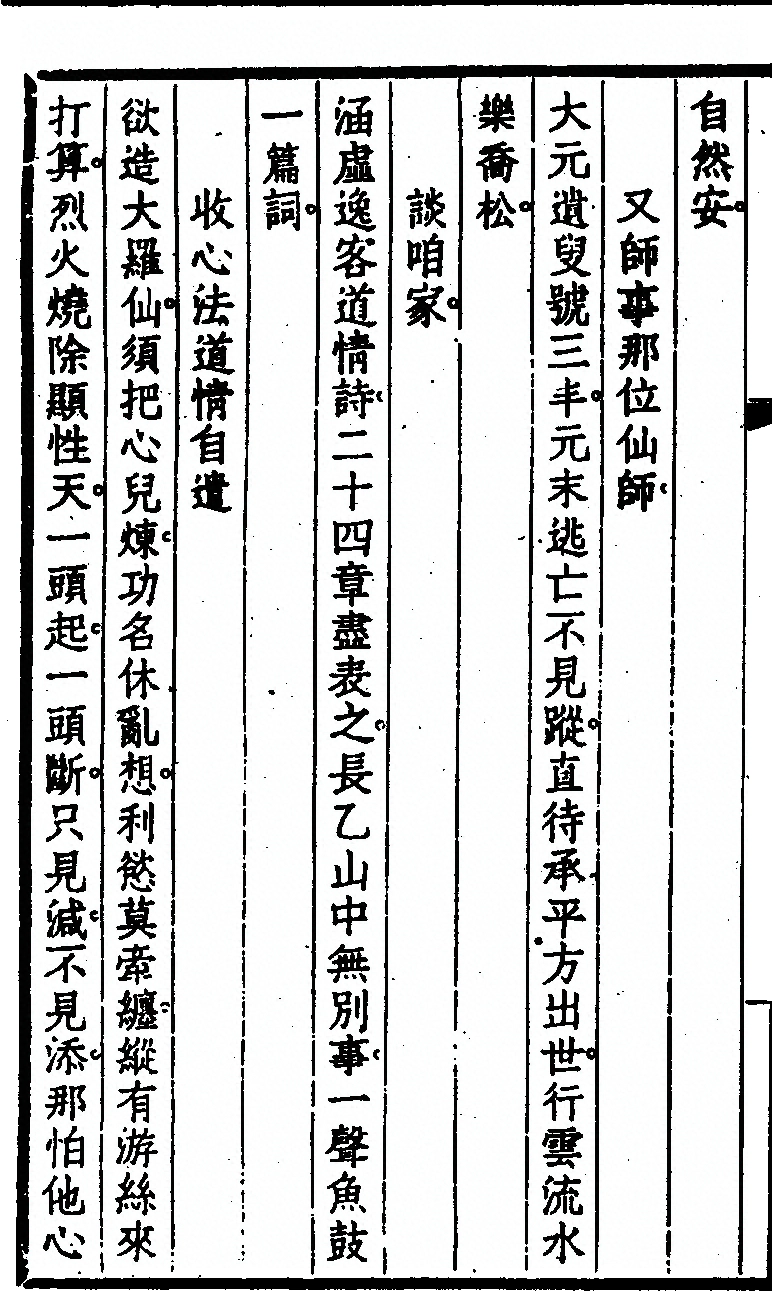 自然安。
又師事那位仙師。
大元遺叟號三丰。元末逃亡不見蹤。直待承平方出世。行雲流水
樂喬松。
談咱家。
涵虛逸客道情詩。二十四章盡表之。長乙山中無別事。一聲魚鼓
一篇詞。
收心法道情自遣
欲造大羅仙。須把心兒煉。功名休亂想。利慾莫牽纏。縱有游絲來
打算。烈火燒除顯性天。一頭起。一頭斷。只見減。不見添。那怕他心